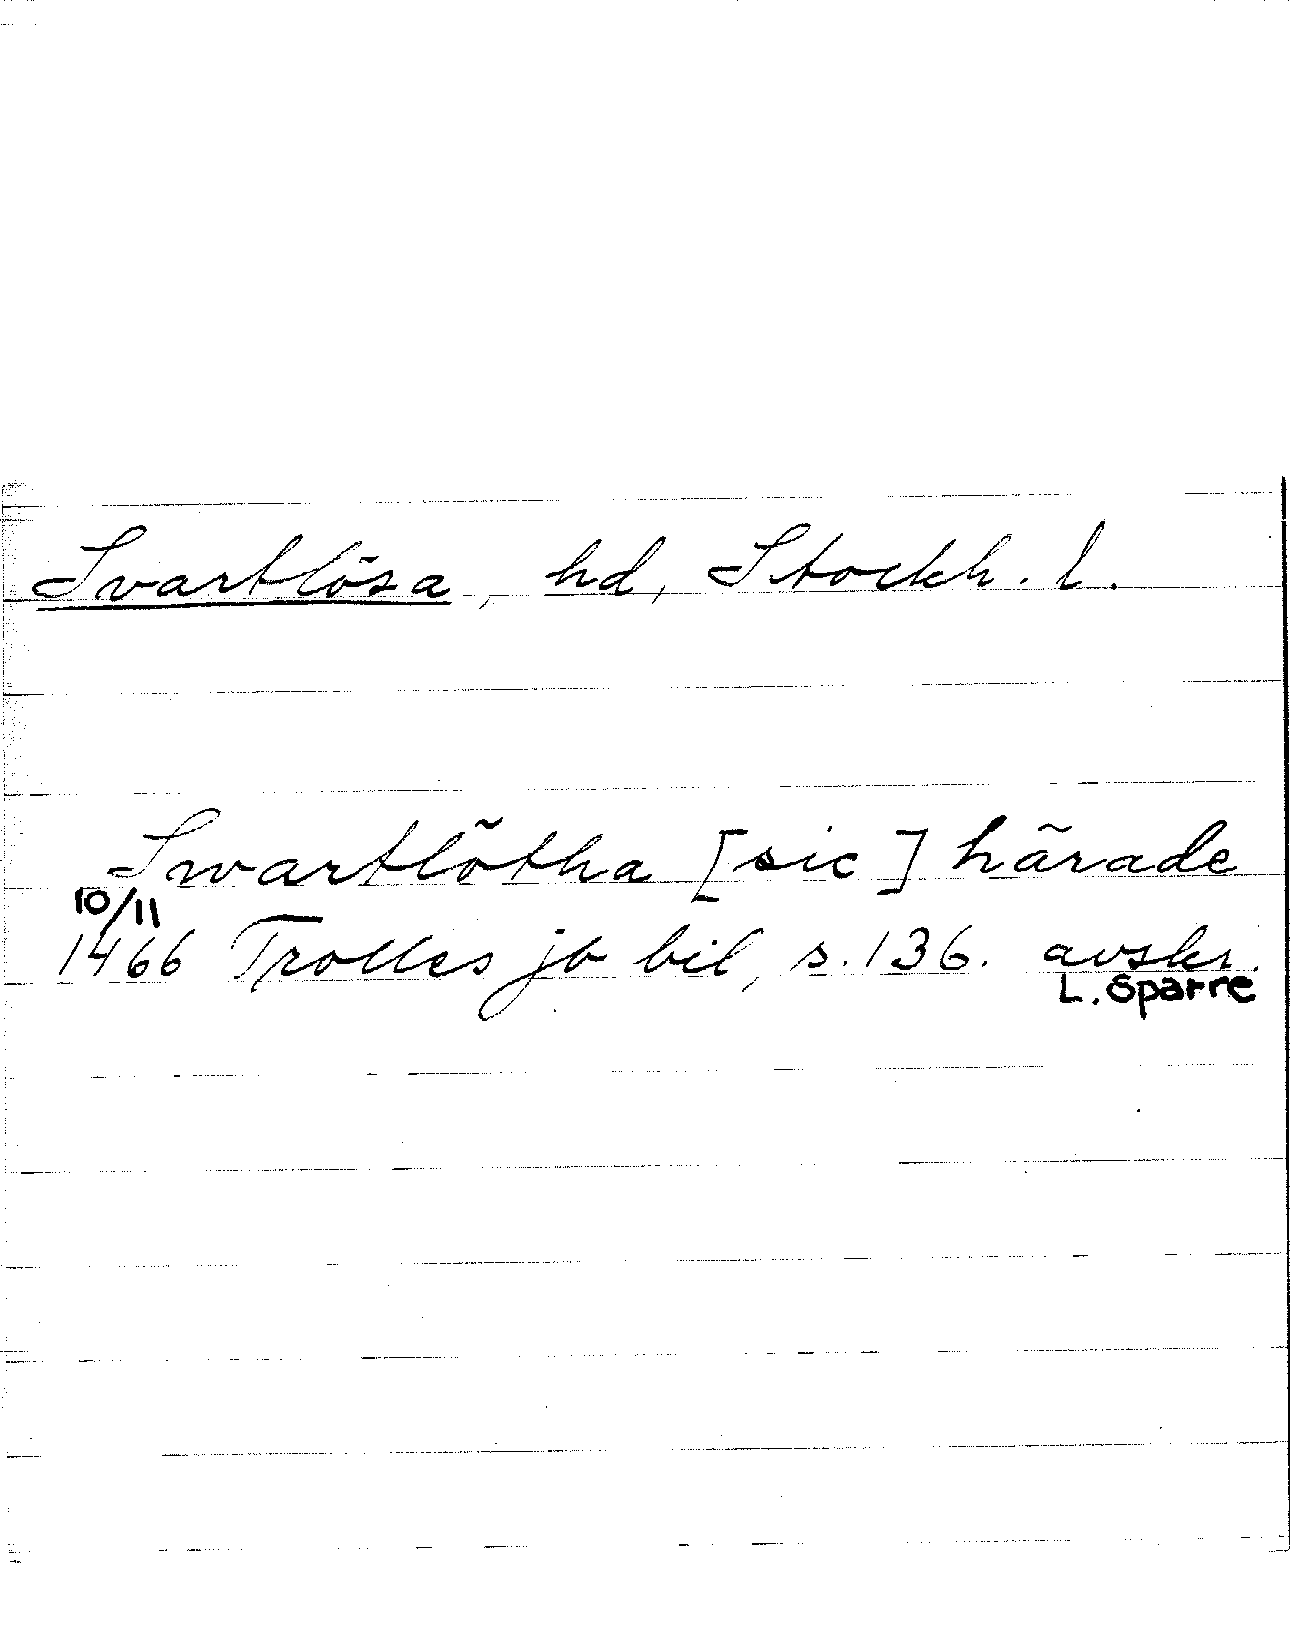 Svartlösa, hd, Stockh. l.
Swartlötha [sic] härade
10/11
1466 Trolles jb bil, s. 136. avskr.
L. Sparre